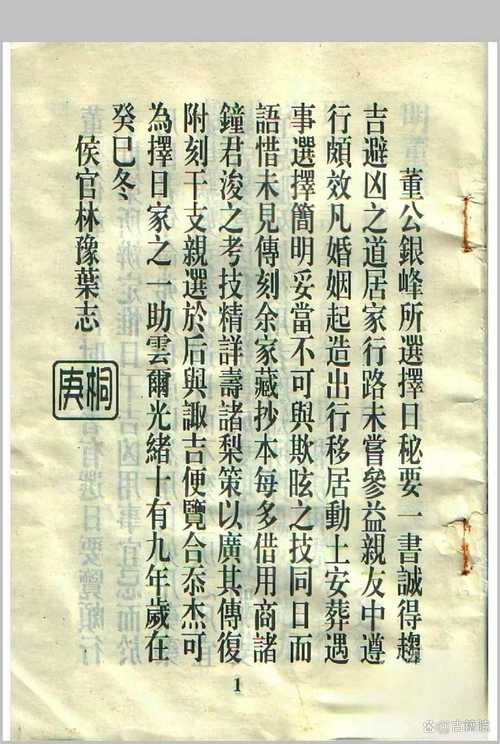 董公銀峰所選擇日秘要一書誠得趨
吉避凶之道居家行路未嘗參益親友中遵
行頗效凡婚姻起造出行移居動土安葬遇
事選擇簡明妥當不可與欺眩之技同日而
語惜未見傳刻余家藏抄本每多借用商諸
鐘君浚之考技精詳壽諸梨策以廣其傳復
附刻干支親選於后與諏吉便覽合忝杰可
為擇日家之一助雲爾光緒十有九年歲在
癸巳冬
侯官林豫葉志
桐庚
1
古籍